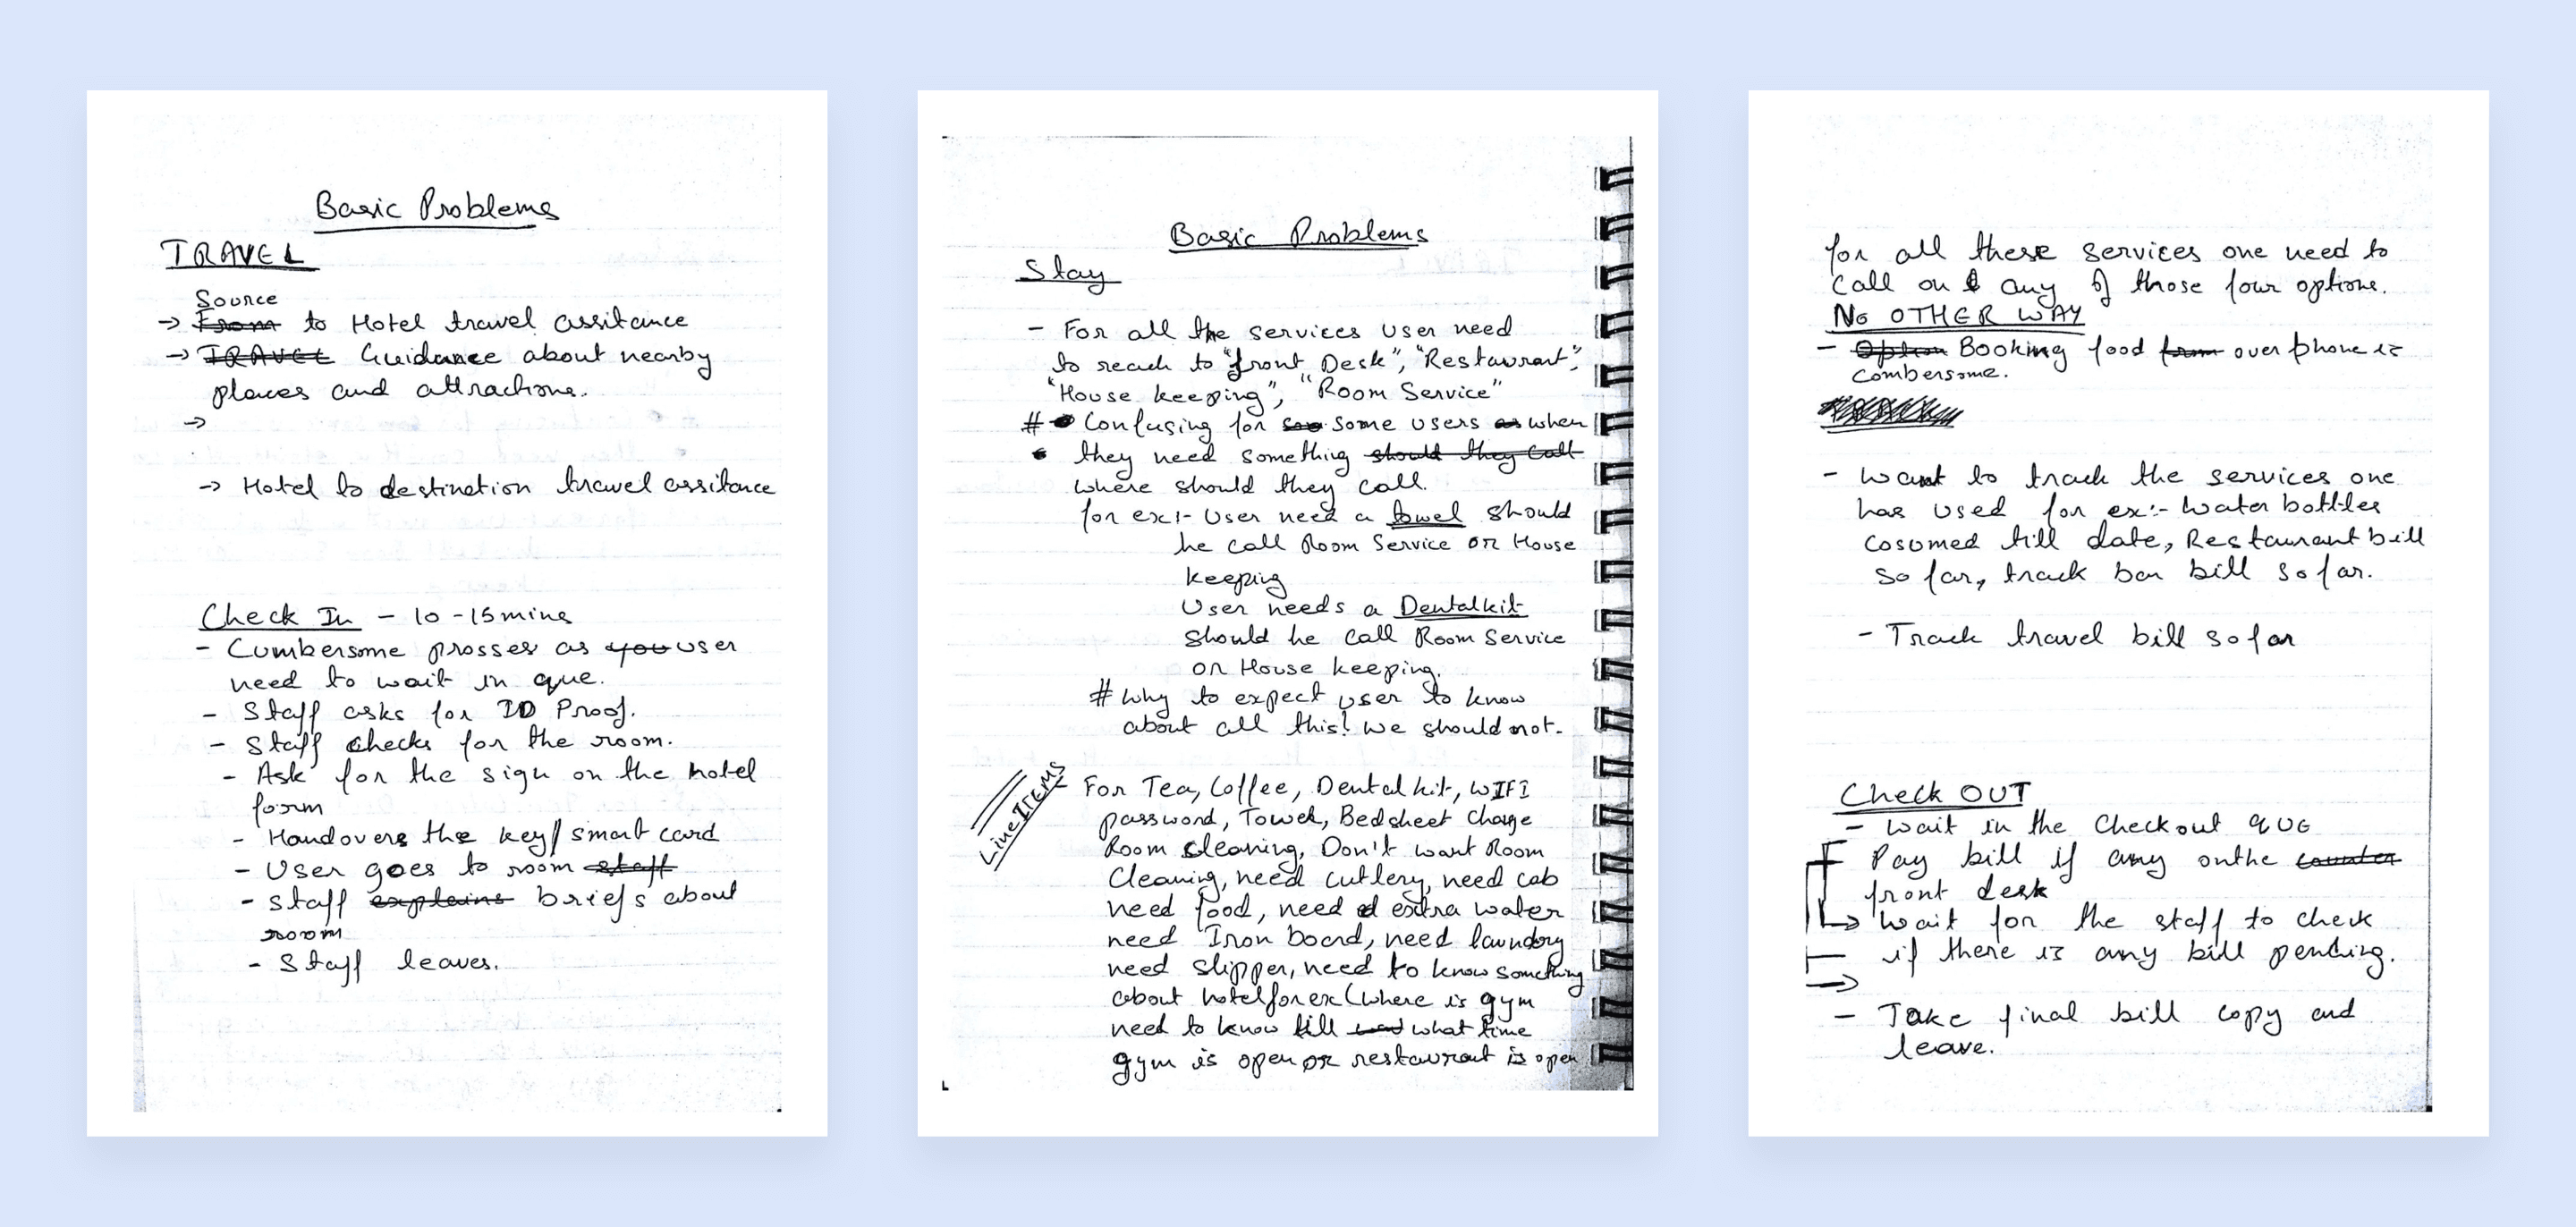 Basic Problems
TRAVEL
Source
→ From to Hotel travel assitance
→ TRAVEL Guidance about nearby
places and attractions.
→
→ Hotel to destination travel assitance
Check In - 10-15 mins
- Cumbersome prosses as you user
need to wait in que.
- Staff asks for ID Proof.
- Staff checks for the room.
- Ask for the sign on the hotel
form
- Handovers the key/smart card
- User goes to room staff
- Staff explains briefs about
room
- Staff leaves.
Basic Problems
Stay
- For all the services user need
to reach to "front Desk", "Restaurant",
"House keeping", "Room Service"
# Confusing for some users as when
they need something should they call
where should they call.
for ex:- User need a towel should
he call Room Service or House
keeping
User needs a Dentalkit
should he call Room Service
or House keeping.
# Why to expect user to know
about all this! we should not.
Line ITEMS
For Tea, Coffee, Dental kit, WIFI
password, Towel, Bedsheet Change
Room cleaning, Don't want Room
Cleaning, need cutlery, need cab
need food, need extra water
need Iron board, need laundry
need slipper, need to know something
about hotel for ex (where is gym
need to know till what time
gym is open or restaurant is open
for all these services one need to
call on any of those four options.
NO OTHER WAY
- Option Booking food from over phone is
Combersome.
- Want to track the services one
has used for ex:- Water bottles
cosumed till date, Restaurant bill
so far, track bar bill so far.
- Track travel bill so far
Check OUT
- Wait in the Checkout QUE
Pay bill if any on the counter
front desk
→ Wait for the staff to check
if there is any bill pending.
→
- Take final bill copy and
leave.